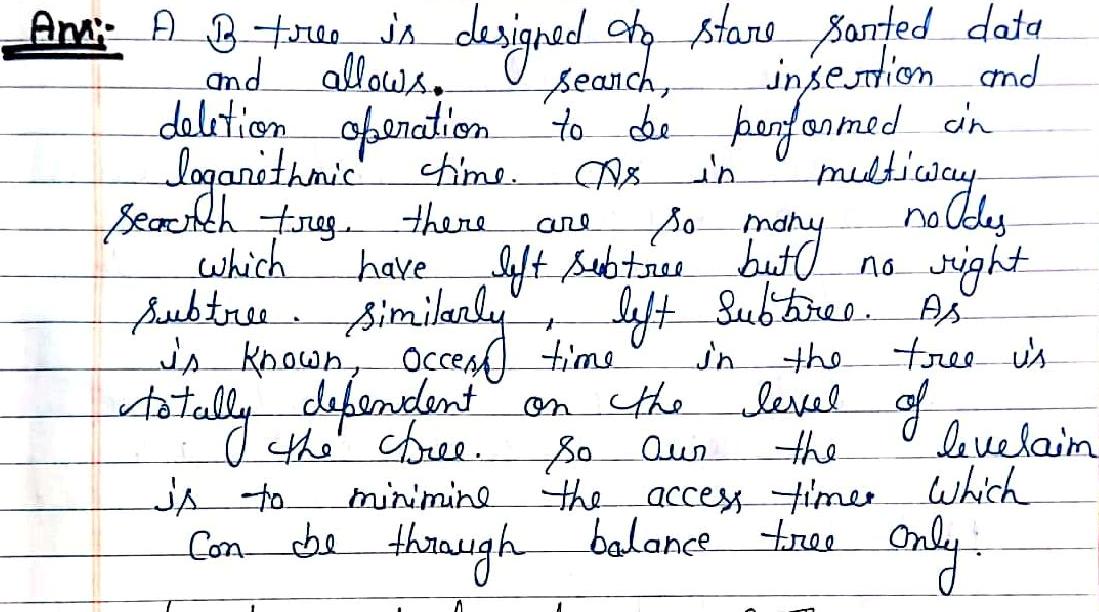 Ans:- A B tree is designed to store sorted data
and allows. search, insertion and
deletion operation to be performed in
logarithmic time. As in multiway
search tree. there are so many nodes
which have left subtree but no right
subtree. similarly, left Subtree. As
is known, access time in the tree is
totally dependent on the level of
the tree. So our the levelaim
is to minimine the access time. Which
Can be through balance tree only.